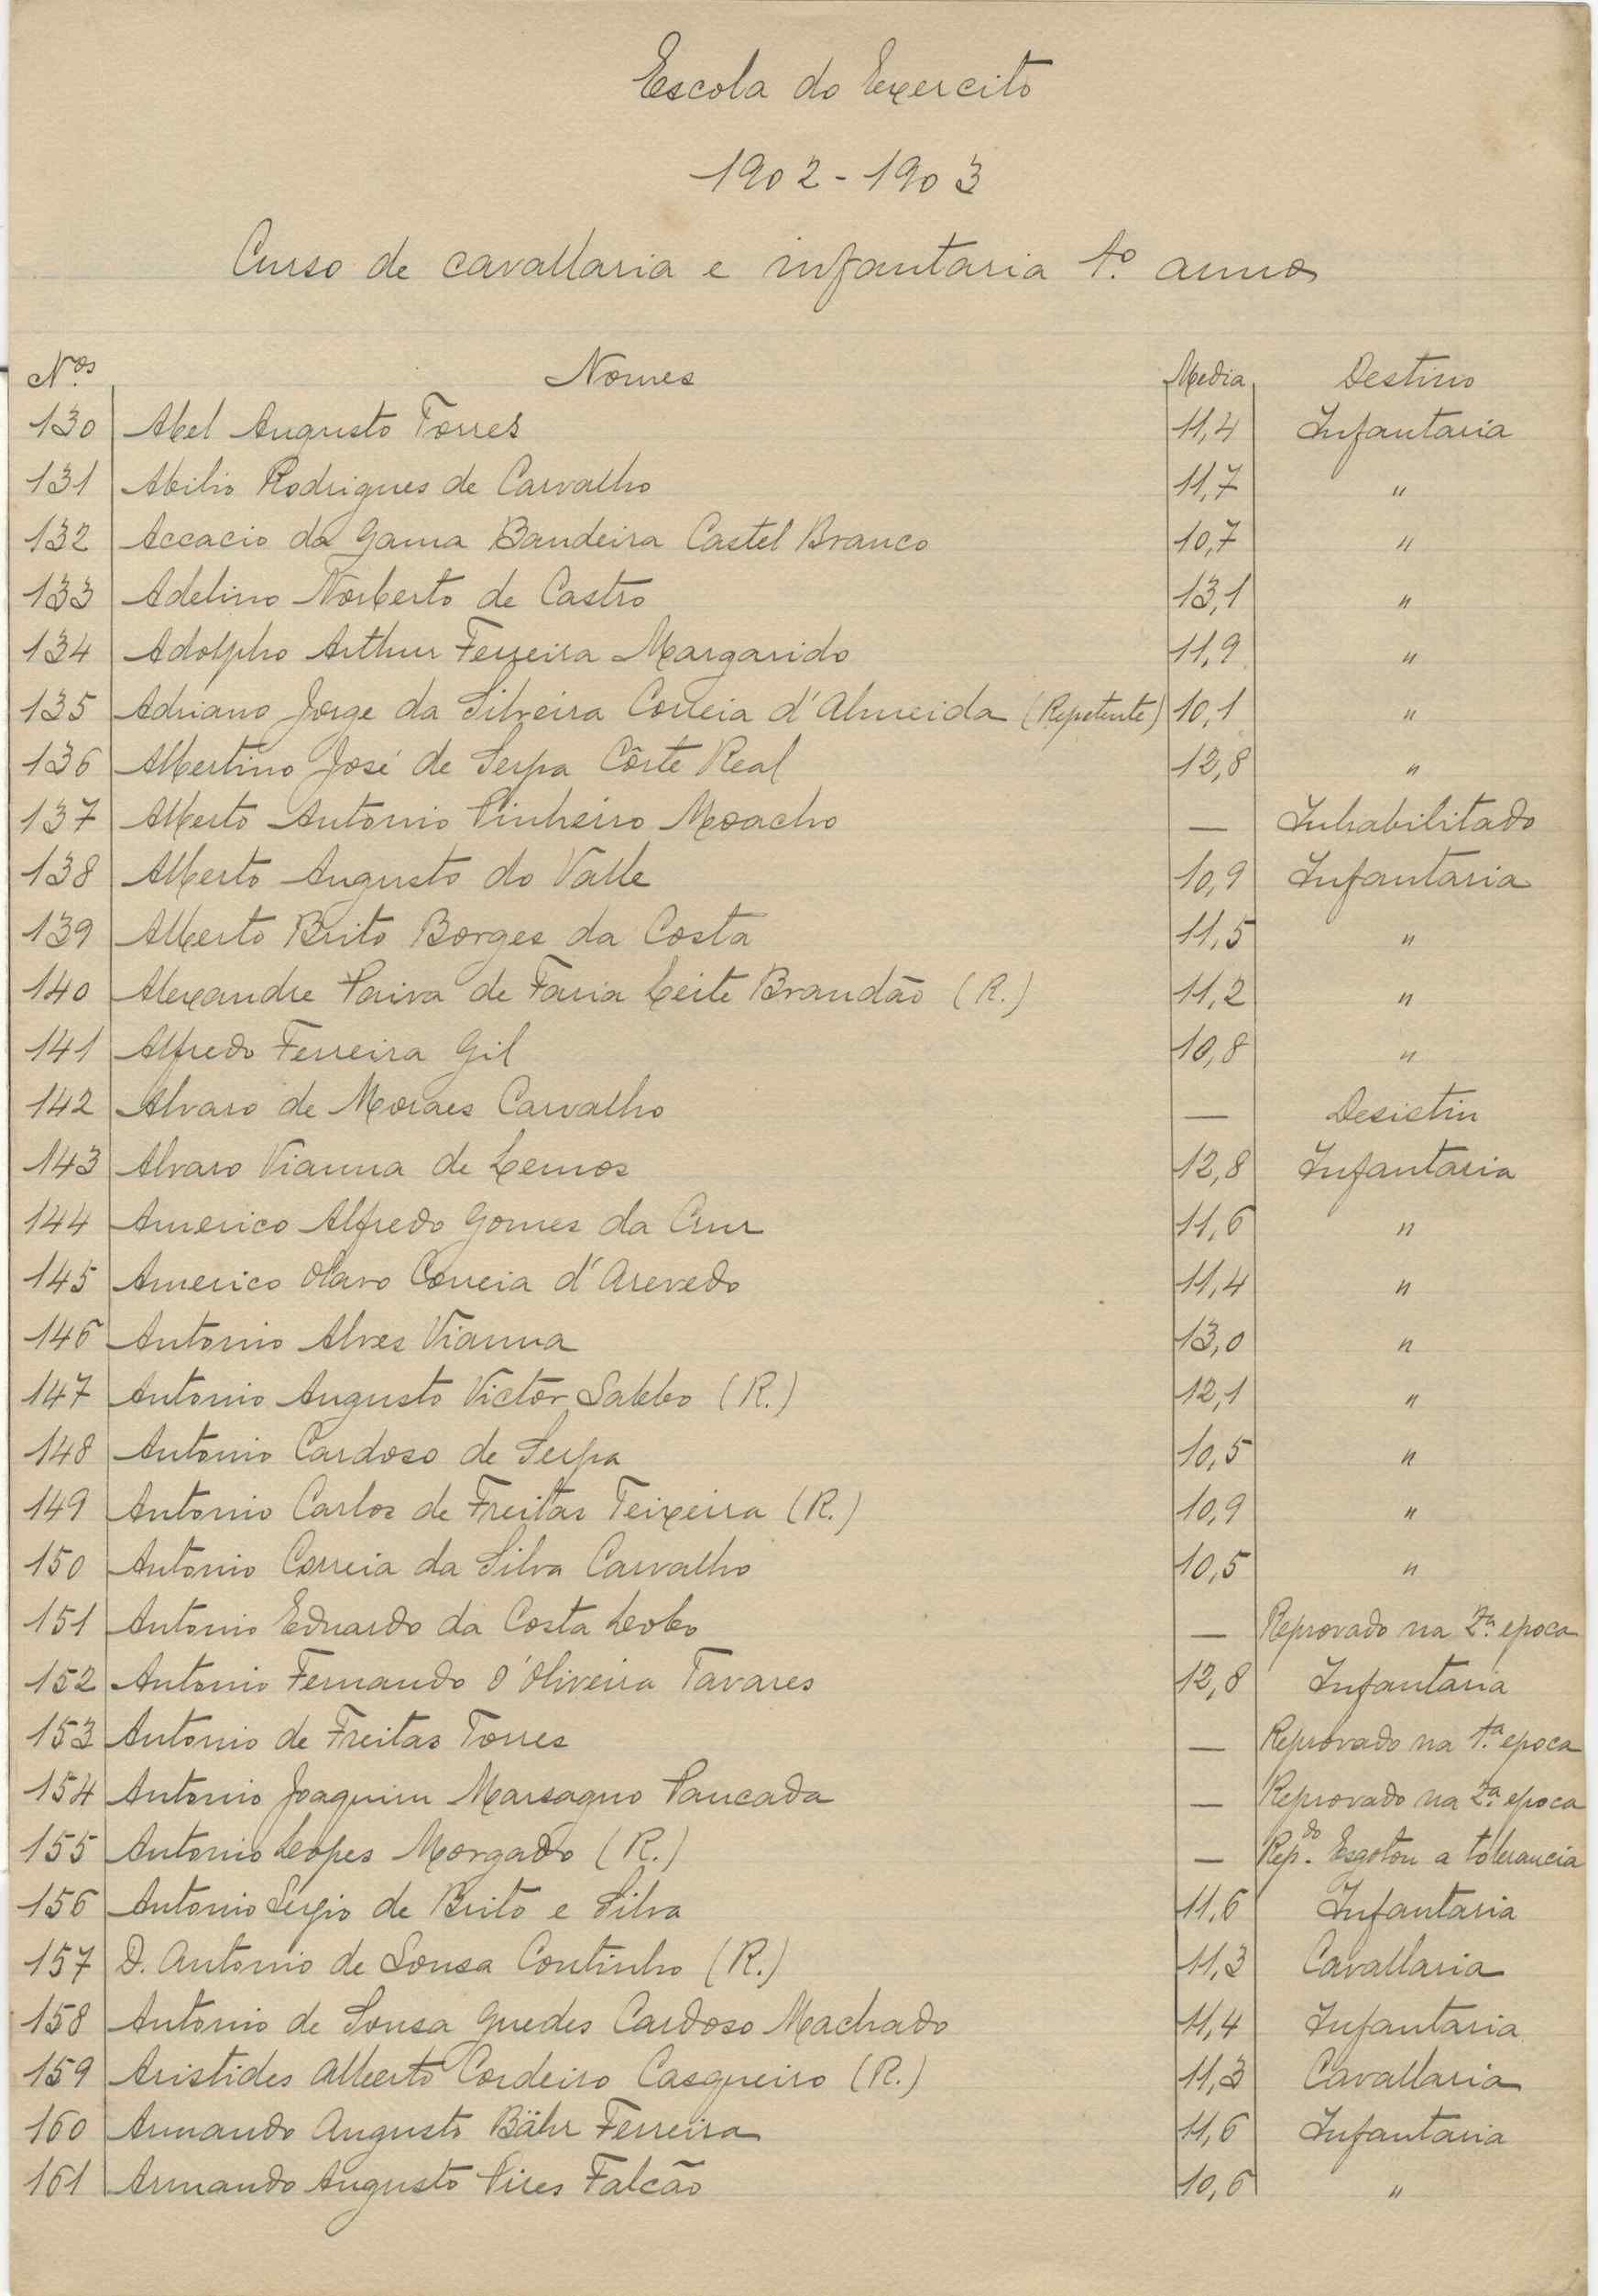 Escola do Exercito
1902-1903
Curso de cavallaria e infantaria 1.º anno
N.os Nomes Media Destino
130 Abel Augusto Torres 11,4 Infantaria
131 Abilio Rodrigues de Carvalho 11,7 "
132 Accacio da Gama Bandeira Castel Branco 10,7 "
133 Adelino Norberto de Castro 13,1 "
134 Adolpho Arthur Ferreira Margarido 11,9 "
135 Adriano Jorge da Silveira Correia d'Almeida (Repetente) 10,1 "
136 Albertino José de Serpa Côrte Real 12,8 "
137 Alberto Antonio Pinheiro Moacho — Inhabilitado
138 Alberto Augusto do Valle 10,9 Infantaria
139 Alberto Brito Borges da Costa 11,5 "
140 Alexandre Paiva de Faria Leite Brandão (R.) 11,2 "
141 Alfredo Ferreira Gil 10,8 "
142 Alvaro de Moraes Carvalho — Desistiu
143 Alvaro Vianna de Lemos 12,8 Infantaria
144 Americo Alfredo Gomes da Cruz 11,6 "
145 Americo Olavo Correia d'Azevedo 11,4 "
146 Antonio Alves Vianna 13,0 "
147 Antonio Augusto Victor Sabbo (R.) 12,1 "
148 Antonio Cardoso de Serpa 10,5 "
149 Antonio Carlos de Freitas Teixeira (R.) 10,9 "
150 Antonio Correia da Silva Carvalho 10,5 "
151 Antonio Eduardo da Costa Lobo — Reprovado na 2.ª epoca
152 Antonio Fernando d'Oliveira Tavares 12,8 Infantaria
153 Antonio de Freitas Torres — Reprovado na 1.ª epoca
154 Antonio Joaquim Marsagno Pancada — Reprovado na 2.ª epoca
155 Antonio Lopes Morgado (R.) — Rep.do Esgotou a tolerancia
156 Antonio Sergio de Brito e Silva 11,6 Infantaria
157 D. Antonio de Sousa Coutinho (R.) 11,3 Cavallaria
158 Antonio de Sousa Guedes Cardoso Machado 11,4 Infantaria
159 Aristides Alberto Cordeiro Casqueiro (R.) 11,3 Cavallaria
160 Armando Augusto Bähr Ferreira 11,6 Infantaria
161 Armando Augusto Pires Falcão 10,6 "